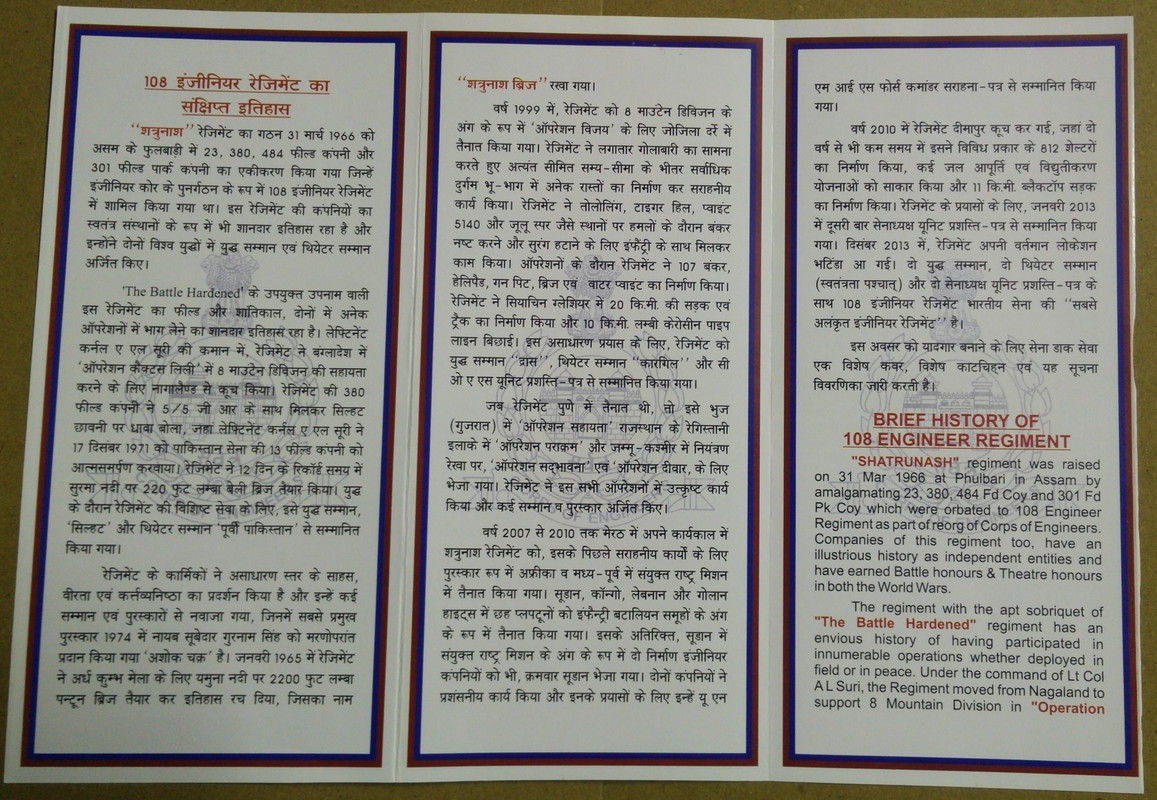 108 इंजीनियर रेजिमेंट का
संक्षिप्त इतिहास
‘‘शत्रुनाश’’ रेजिमेंट का गठन 31 मार्च 1966 को
असम के फुलबाड़ी में 23, 380, 484 फील्ड कंपनी और
301 फील्ड पार्क कंपनी का एकीकरण किया गया जिन्हें
इंजीनियर कोर के पुनर्गठन के रूप में 108 इंजीनियर रेजिमेंट
में शामिल किया गया था। इस रेजिमेंट की कंपनियों का
स्वतंत्र संस्थानों के रूप में भी शानदार इतिहास रहा है और
इन्होंने दोनों विश्व युद्धों में युद्ध सम्मान एवं थियेटर सम्मान
अर्जित किए।
'The Battle Hardened' के उपयुक्त उपनाम वाली
इस रेजिमेंट का फील्ड और शांतिकाल, दोनों में अनेक
ऑपरेशनों में भाग लेने का शानदार इतिहास रहा है। लेफ्टिनेंट
कर्नल ए एल सूरी की कमान में, रेजिमेंट ने बंग्लादेश में
‘ऑपरेशन कैक्टस लिली’ में 8 माउटेन डिविजन की सहायता
करने के लिए नागालैण्ड से कूच किया। रेजिमेंट की 380
फील्ड कंपनी ने 5/5 जी आर के साथ मिलकर सिल्हट
छावनी पर धावा बोला, जहां लेफ्टिनेंट कर्नल ए एल सूरी ने
17 दिसंबर 1971 को पाकिस्तान सेना की 13 फील्ड कंपनी को
आत्मसमर्पण करवाया। रेजिमेंट ने 12 दिन के रिकॉर्ड समय में
सुरमा नदी पर 220 फुट लम्बा बेली ब्रिज तैयार किया। युद्ध
के दौरान रेजिमेंट की विशिष्ट सेवा के लिए, इसे युद्ध सम्मान,
‘सिल्हट’ और थियेटर सम्मान ‘पूर्वी पाकिस्तान’ से सम्मानित
किया गया।
रेजिमेंट के कार्मिकों ने असाधारण स्तर के साहस,
वीरता एवं कर्त्तव्यनिष्ठा का प्रदर्शन किया है और इन्हें कई
सम्मान एवं पुरस्कारों से नवाजा गया, जिनमें सबसे प्रमुख
पुरस्कार 1974 में नायब सूबेदार गुरनाम सिंह को मरणोपरांत
प्रदान किया गया ‘अशोक चक्र’ है। जनवरी 1965 में रेजिमेंट
ने अर्ध कुम्भ मेला के लिए यमुना नदी पर 2200 फुट लम्बा
पन्टून ब्रिज तैयार कर इतिहास रच दिया, जिसका नाम
‘‘शत्रुनाश ब्रिज’’ रखा गया।
वर्ष 1999 में, रेजिमेंट को 8 माउटेन डिविजन के
अंग के रूप में ‘ऑपरेशन विजय’ के लिए जोजिला दर्रे में
तैनात किया गया। रेजिमेंट ने लगातार गोलाबारी का सामना
करते हुए अत्यंत सीमित सम्य-सीमा के भीतर सर्वाधिक
दुर्गम भू-भाग में अनेक रास्तों का निर्माण कर सराहनीय
कार्य किया। रेजिमेंट ने तोलोलिंग, टाइगर हिल, प्वाइंट
5140 और जूलू स्पर जैसे स्थानों पर हमलों के दौरान बंकर
नष्ट करने और सुरंग हटाने के लिए इंफैंट्री के साथ मिलकर
काम किया। ऑपरेशनों के दौरान रेजिमेंट ने 107 बंकर,
हेलिपैड, गन पिट, ब्रिज एवं वाटर प्वाइंट का निर्माण किया।
रेजिमेंट ने सियाचिन ग्लेशियर में 20 कि.मी. की सड़क एवं
ट्रैक का निर्माण किया और 10 कि.मी. लम्बी केरोसीन पाइप
लाइन बिछाई। इस असाधारण प्रयास के लिए, रेजिमेंट को
युद्ध सम्मान ‘‘द्रास’’, थियेटर सम्मान ‘‘कारगिल’’ और सी
ओ ए एस यूनिट प्रशस्ति-पत्र से सम्मानित किया गया।
जब रेजिमेंट पुणे में तैनात थी, तो इसे भुज
(गुजरात) में ‘ऑपरेशन सहायता’ राजस्थान के रेगिस्तानी
इलाके में ‘ऑपरेशन पराक्रम’ और जम्मू-कश्मीर में नियंत्रण
रेखा पर, ‘ऑपरेशन सद्भावना’ एवं ‘ऑपरेशन दीवार, के लिए
भेजा गया। रेजिमेंट ने इस सभी ऑपरेशनों में उत्कृष्ट कार्य
किया और कई सम्मान व पुरस्कार अर्जित किए।
वर्ष 2007 से 2010 तक मेरठ में अपने कार्यकाल में
शत्रुनाश रेजिमेंट को, इसके पिछले सराहनीय कार्यों के लिए
पुरस्कार रूप में अफ्रीका व मध्य-पूर्व में संयुक्त राष्ट्र मिशन
में तैनात किया गया। सूडान, कॉन्गो, लेबनान और गोलान
हाइट्स में छह प्लपटूनों को इंफैन्ट्री बटालियन समूहों के अंग
के रूप में तैनात किया गया। इसके अतिरिक्त, सूडान में
संयुक्त राष्ट्र मिशन के अंग के रूप में दो निर्माण इंजीनियर
कंपनियों को भी, क्रमवार सूडान भेजा गया। दोनों कंपनियों ने
प्रशंसनीय कार्य किया और इनके प्रयासों के लिए इन्हें यू एन
एम आई एस फोर्स कमांडर सराहना-पत्र से सम्मानित किया
गया।
वर्ष 2010 में रेजिमेंट दीमापुर कूच कर गई, जहां दो
वर्ष से भी कम समय में इसने विविध प्रकार के 812 शेल्टरों
का निर्माण किया, कई जल आपूर्ति एवं विद्युतीकरण
योजनाओं को साकार किया और 11 कि.मी. ब्लैकटॉप सड़क
का निर्माण किया। रेजिमेंट के प्रयासों के लिए, जनवरी 2013
में दूसरी बार सेनाध्यक्ष यूनिट प्रशस्ति-पत्र से सम्मानित किया
गया। दिसंबर 2013 में, रेजिमेंट अपनी वर्तमान लोकेशन
भटिंडा आ गई। दो युद्ध सम्मान, दो थियेटर सम्मान
(स्वतंत्रता पश्चात्) और दो सेनाध्यक्ष यूनिट प्रशस्ति-पत्र के
साथ 108 इंजीनियर रेजिमेंट भारतीय सेना की ‘‘सबसे
अलंकृत इंजीनियर रेजिमेंट’’ है।
इस अवसर को यादगार बनाने के लिए सेना डाक सेवा
एक विशेष कवर, विशेष काटचिहन एवं यह सूचना
विवरणिका जारी करती है।
BRIEF HISTORY OF
108 ENGINEER REGIMENT
"SHATRUNASH" regiment was raised
on 31 Mar 1966 at Phulbari in Assam by
amalgamating 23, 380, 484 Fd Coy and 301 Fd
Pk Coy which were orbated to 108 Engineer
Regiment as part of reorg of Corps of Engineers.
Companies of this regiment too, have an
illustrious history as independent entities and
have earned Battle honours & Theatre honours
in both the World Wars.
The regiment with the apt sobriquet of
"The Battle Hardened" regiment has an
envious history of having participated in
innumerable operations whether deployed in
field or in peace. Under the command of Lt Col
A L Suri, the Regiment moved from Nagaland to
support 8 Mountain Division in "Operation